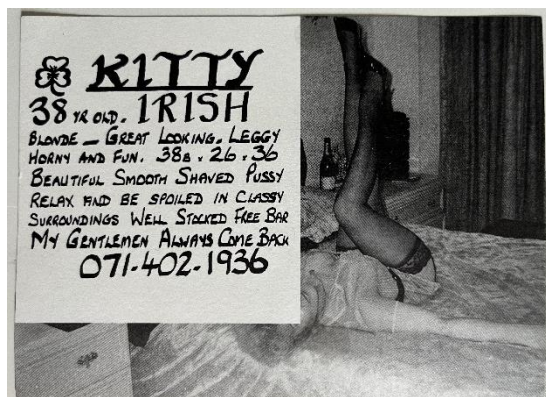 KITTY
38 YR OLD. IRISH
BLONDE – GREAT LOOKING. LEGGY
HORNY AND FUN. 38B. 26. 36
BEAUTIFUL SMOOTH SHAVED PUSSY
RELAX AND BE SPOILED IN CLASSY
SURROUNDINGS WELL STOCKED FREE BAR
MY GENTLEMEN ALWAYS COME BACK
071-402-1936